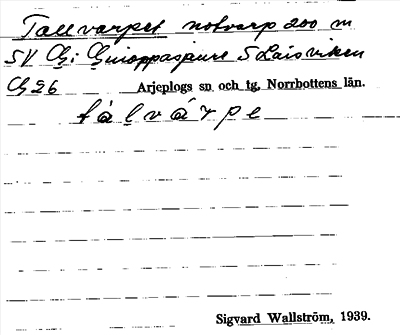 Tallvarpet notvarp 200 m
SV Gh i Guioppasjaure S Laisviken
Gh 26 Arjeplogs sn och tg, Norrbottens län.
tàlvárpe
Sigvard Wallström, 1939.